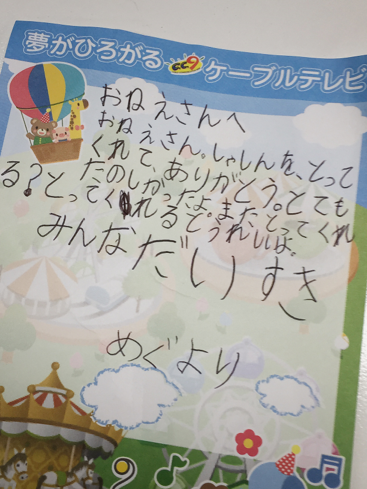 夢がひろがる cc9 ケーブルテレビ
おねえさんへ
おねえさん。しゃしんを、とって
くれて、ありがとう。とても
たのしかったよ。また、とってくれ
る?とってくれるとうれしいよ。
みんなだいりすき
めぐより
9